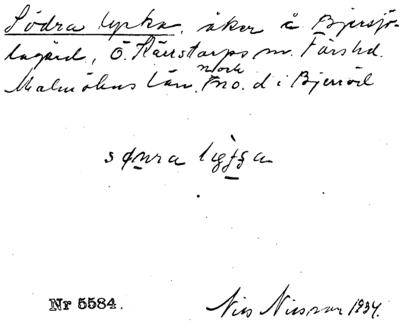 Södra lycka, åker å Bjersjö-
lagård, Ö. Kärrstorps sn. Färs hd.
Malmöhus län. F. no. d i Bjerröd
mork
sønra ligga
Nr 5584. Nils Nilsson 1934.